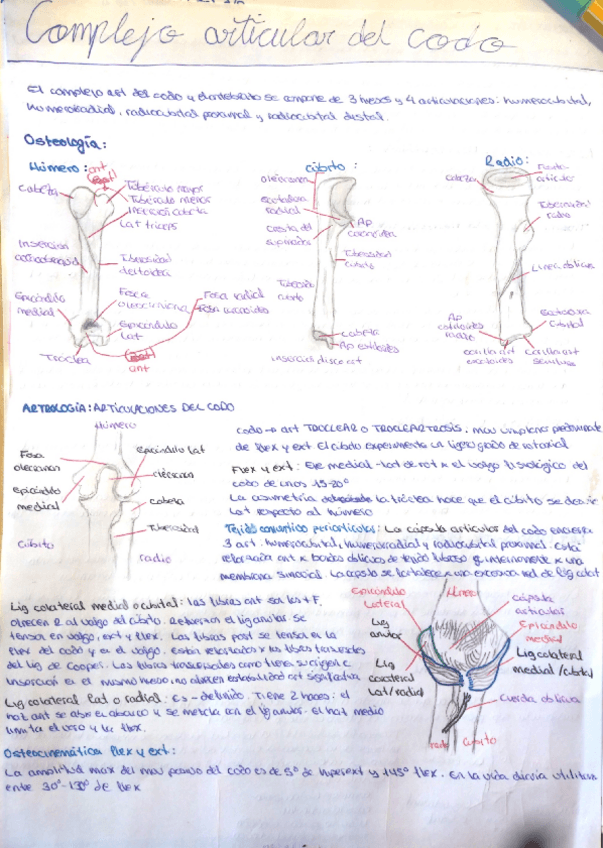 Complejo articular del codo
El complejo art del codo y antebrazo se compone de 3 huesos y 4 articulaciones: humerocubital,
humeroradial, radiocubital proximal y radiocubital distal.
Osteología:
Húmero: ant
cabeza
Tubérculo mayor
Tubérculo menor
Lat triceps
Inserción
Tuberosidad deltoidea
Epicóndilo medial
Fosa olecraniana
Fosa radial
Fosa coronoides
Epicóndilo lat
Troclea
ant
cúbito:
olecranon
escotadura radial
cresta del supinador
Ap coronoidea
Tuberosidad cubito
cabeza
Ap estiloides
insercion disco art
Radio:
cabeza
Tuberosidad radio
Linea oblicua
Ap estiloides radio
Escotadura cubital
carilla art escafoides
carilla art semilunar
ARTROLOGÍA: ARTICULACIONES DEL CODO
Húmero
Fosa olecranon
epicóndilo Lat
olécranon
epicóndilo medial
cabeza
Tuberosidad
cúbito
radio
codo → art TROCLEAR o TROCLEARTROSIS, mov uniplano predominante
de flex y ext. El cúbito experimenta un ligero grado de rotación axial
Flex y ext: Eje medial-lat de rot x el valgo fisiológico del
codo de unos 15-20°
La asimetría la tróclea hace que el cúbito se desvie
Lat respecto al húmero
Tejido conuntivo periarticular: La cápsula articular del codo encierra
3 art: humerocubital, humeroradial y radiocubital proximal. Está
reforzada ant x bandas oblicuas de tejido fibroso e internamente x una
membrana sinovial. La capsula se fortalece x una extensa red de lig colat
Lig colateral medial o cubital: las fibras ant son las + F,
ofrecen R al valgo del cúbito. Refuerzan el lig anular. Se
tensa en valgo, ext y flex. Las fibras post se tensan en la
flex del codo y en el valgo. Están reforzadas x las fibras transversales
del lig de Cooper. Las fibras transversales como tienen su origen e
inserción en el mismo hueso no ofrecen estabilidad art significativa
Lig colateral lat o radial: Es - definido. Tiene 2 haces: el
haz ant se abre en abanico y se mezcla con el lig anular. El haz medio
limita el varo y la flex.
Epicóndilo Lateral
Húmero
cápsula articular
Epicóndilo medial
Lig anular
Lig colateral medial/cubital
Lig colateral Lat/radial
cuerda oblicua
radio
cúbito
Osteocinemática flex y ext:
La amplitud max del mov pasivo del codo es de 5° de hiperext y 145° flex. En la vida diaria utilizamos
entre 30°-130° de flex